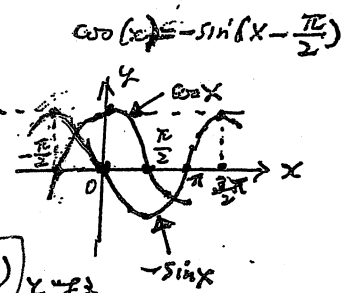 cos(x)=-sin(x-π/2)
y
cosx
-π/2
π/2
0
π
3/2π
x
-sinx